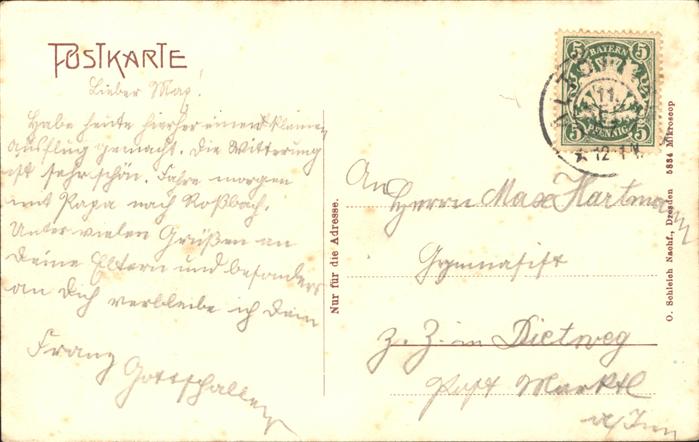 POSTKARTE
Lieber Max!
Habe heute hierher einen kleinen
Ausflug gemacht. Die Witterung
ist sehr schön. Fahre morgen
mit Papa nach Roßbach.
Unter vielen Grüßen an
Deine Eltern und besonders
an Dich verbleibe ich Dein
Franz
5 BAYERN 5
5 PFENNIG 5
11.
12-1 N.
An
Herrn Max Hartmann
Gymnasist
z. Z. in Dietweg
Post Marktl
a/Inn
Nur für die Adresse.
O. Schleich Nachf., Dresden 5834 Mikroscop